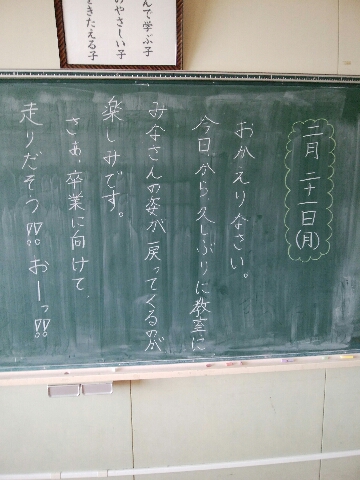 んで学ぶ子
のやさしい子
をきたえる子
二月二十一日(月)
おかえりなさい。
今日から、久しぶりに教室に
みなさんの姿が戻ってくるのが
楽しみです。
さぁ、卒業に向けて、
走りだそう!!! おーっ!!!